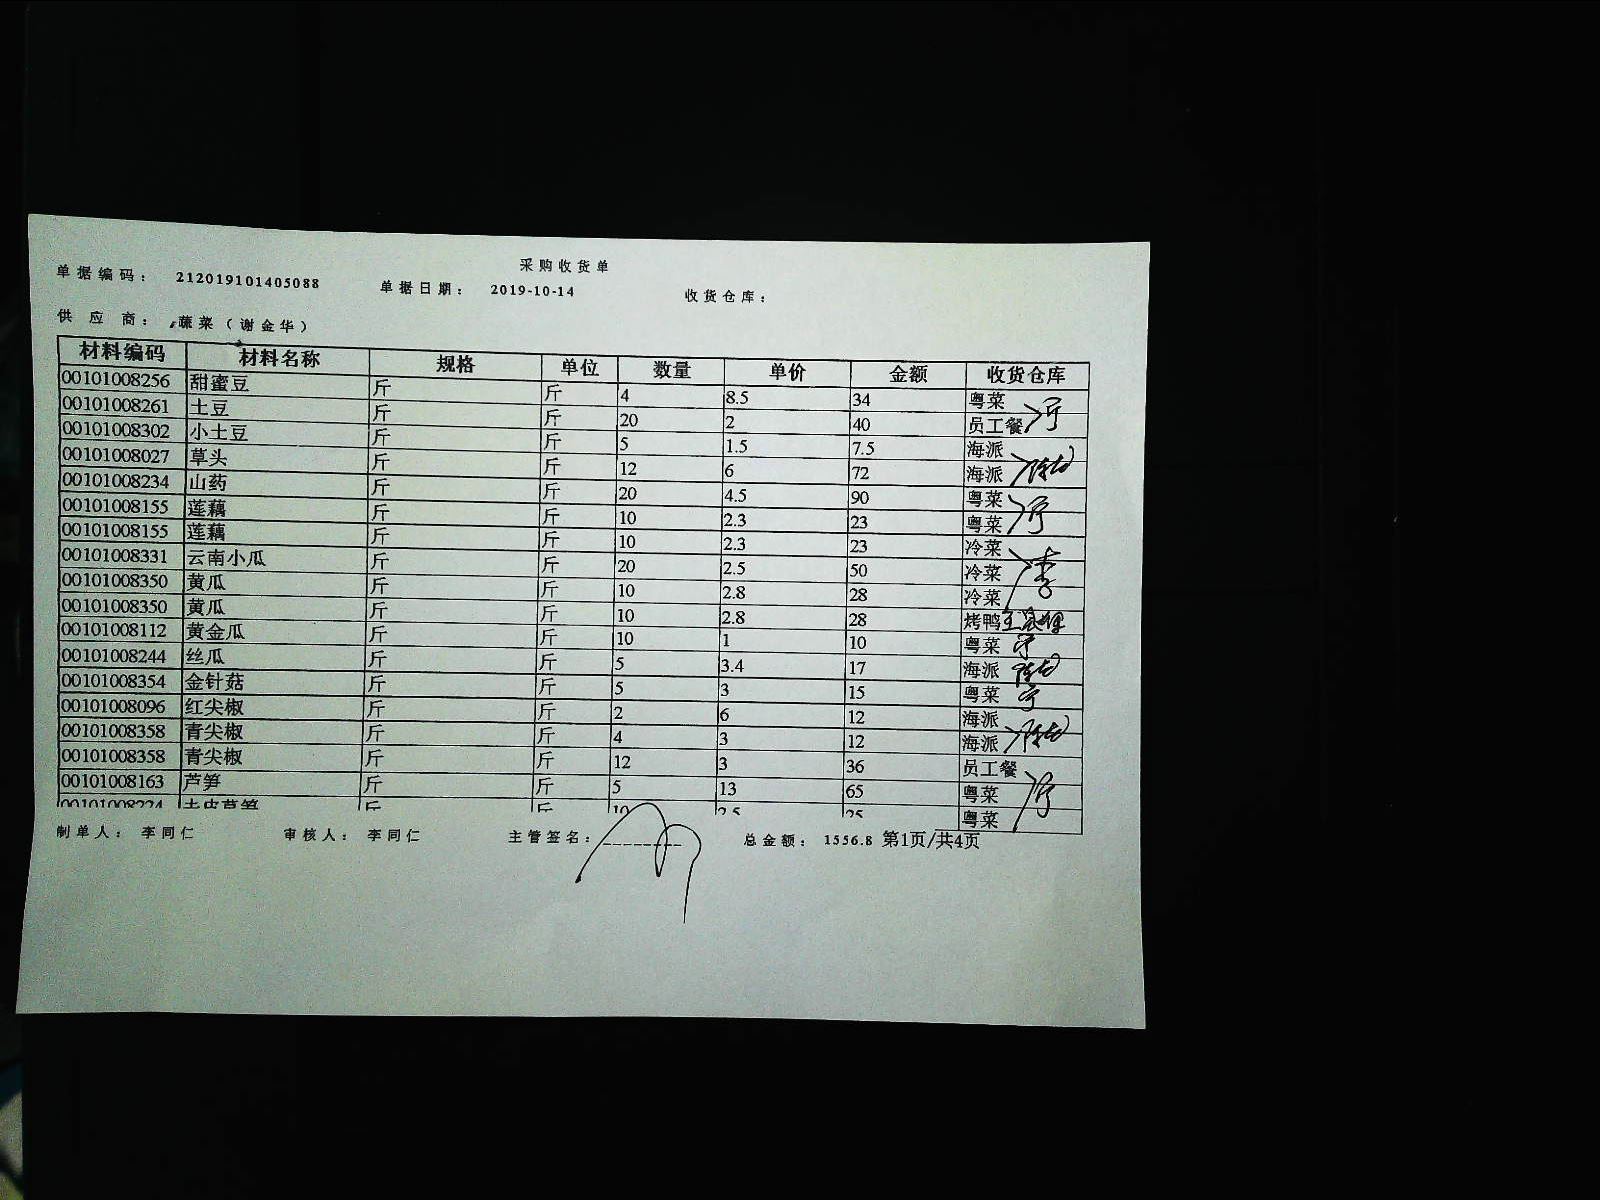 采购收货单
单据编码： 212019101405088 单据日期： 2019-10-14 收货仓库：
供应商： 蔬菜（谢金华）
材料编码 材料名称 规格 单位 数量 单价 金额 收货仓库
00101008256 甜蜜豆 斤 斤 4 8.5 34 粤菜
00101008261 土豆 斤 斤 20 2 40 员工餐
00101008302 小土豆 斤 斤 5 1.5 7.5 海派
00101008027 草头 斤 斤 12 6 72 海派
00101008234 山药 斤 斤 20 4.5 90 粤菜
00101008155 莲藕 斤 斤 10 2.3 23 粤菜
00101008155 莲藕 斤 斤 10 2.3 23 冷菜
00101008331 云南小瓜 斤 斤 20 2.5 50 冷菜
00101008350 黄瓜 斤 斤 10 2.8 28 冷菜
00101008350 黄瓜 斤 斤 10 2.8 28 烤鸭
00101008112 黄金瓜 斤 斤 10 1 10 粤菜
00101008244 丝瓜 斤 斤 5 3.4 17 海派
00101008354 金针菇 斤 斤 5 3 15 粤菜
00101008096 红尖椒 斤 斤 2 6 12 海派
00101008358 青尖椒 斤 斤 4 3 12 海派
00101008358 青尖椒 斤 斤 12 3 36 员工餐
00101008163 芦笋 斤 斤 5 13 65 粤菜
00101008224 斤 斤 10 2.5 25 粤菜
制单人： 李同仁 审核人： 李同仁 主管签名： 总金额： 1556.8 第1页/共4页